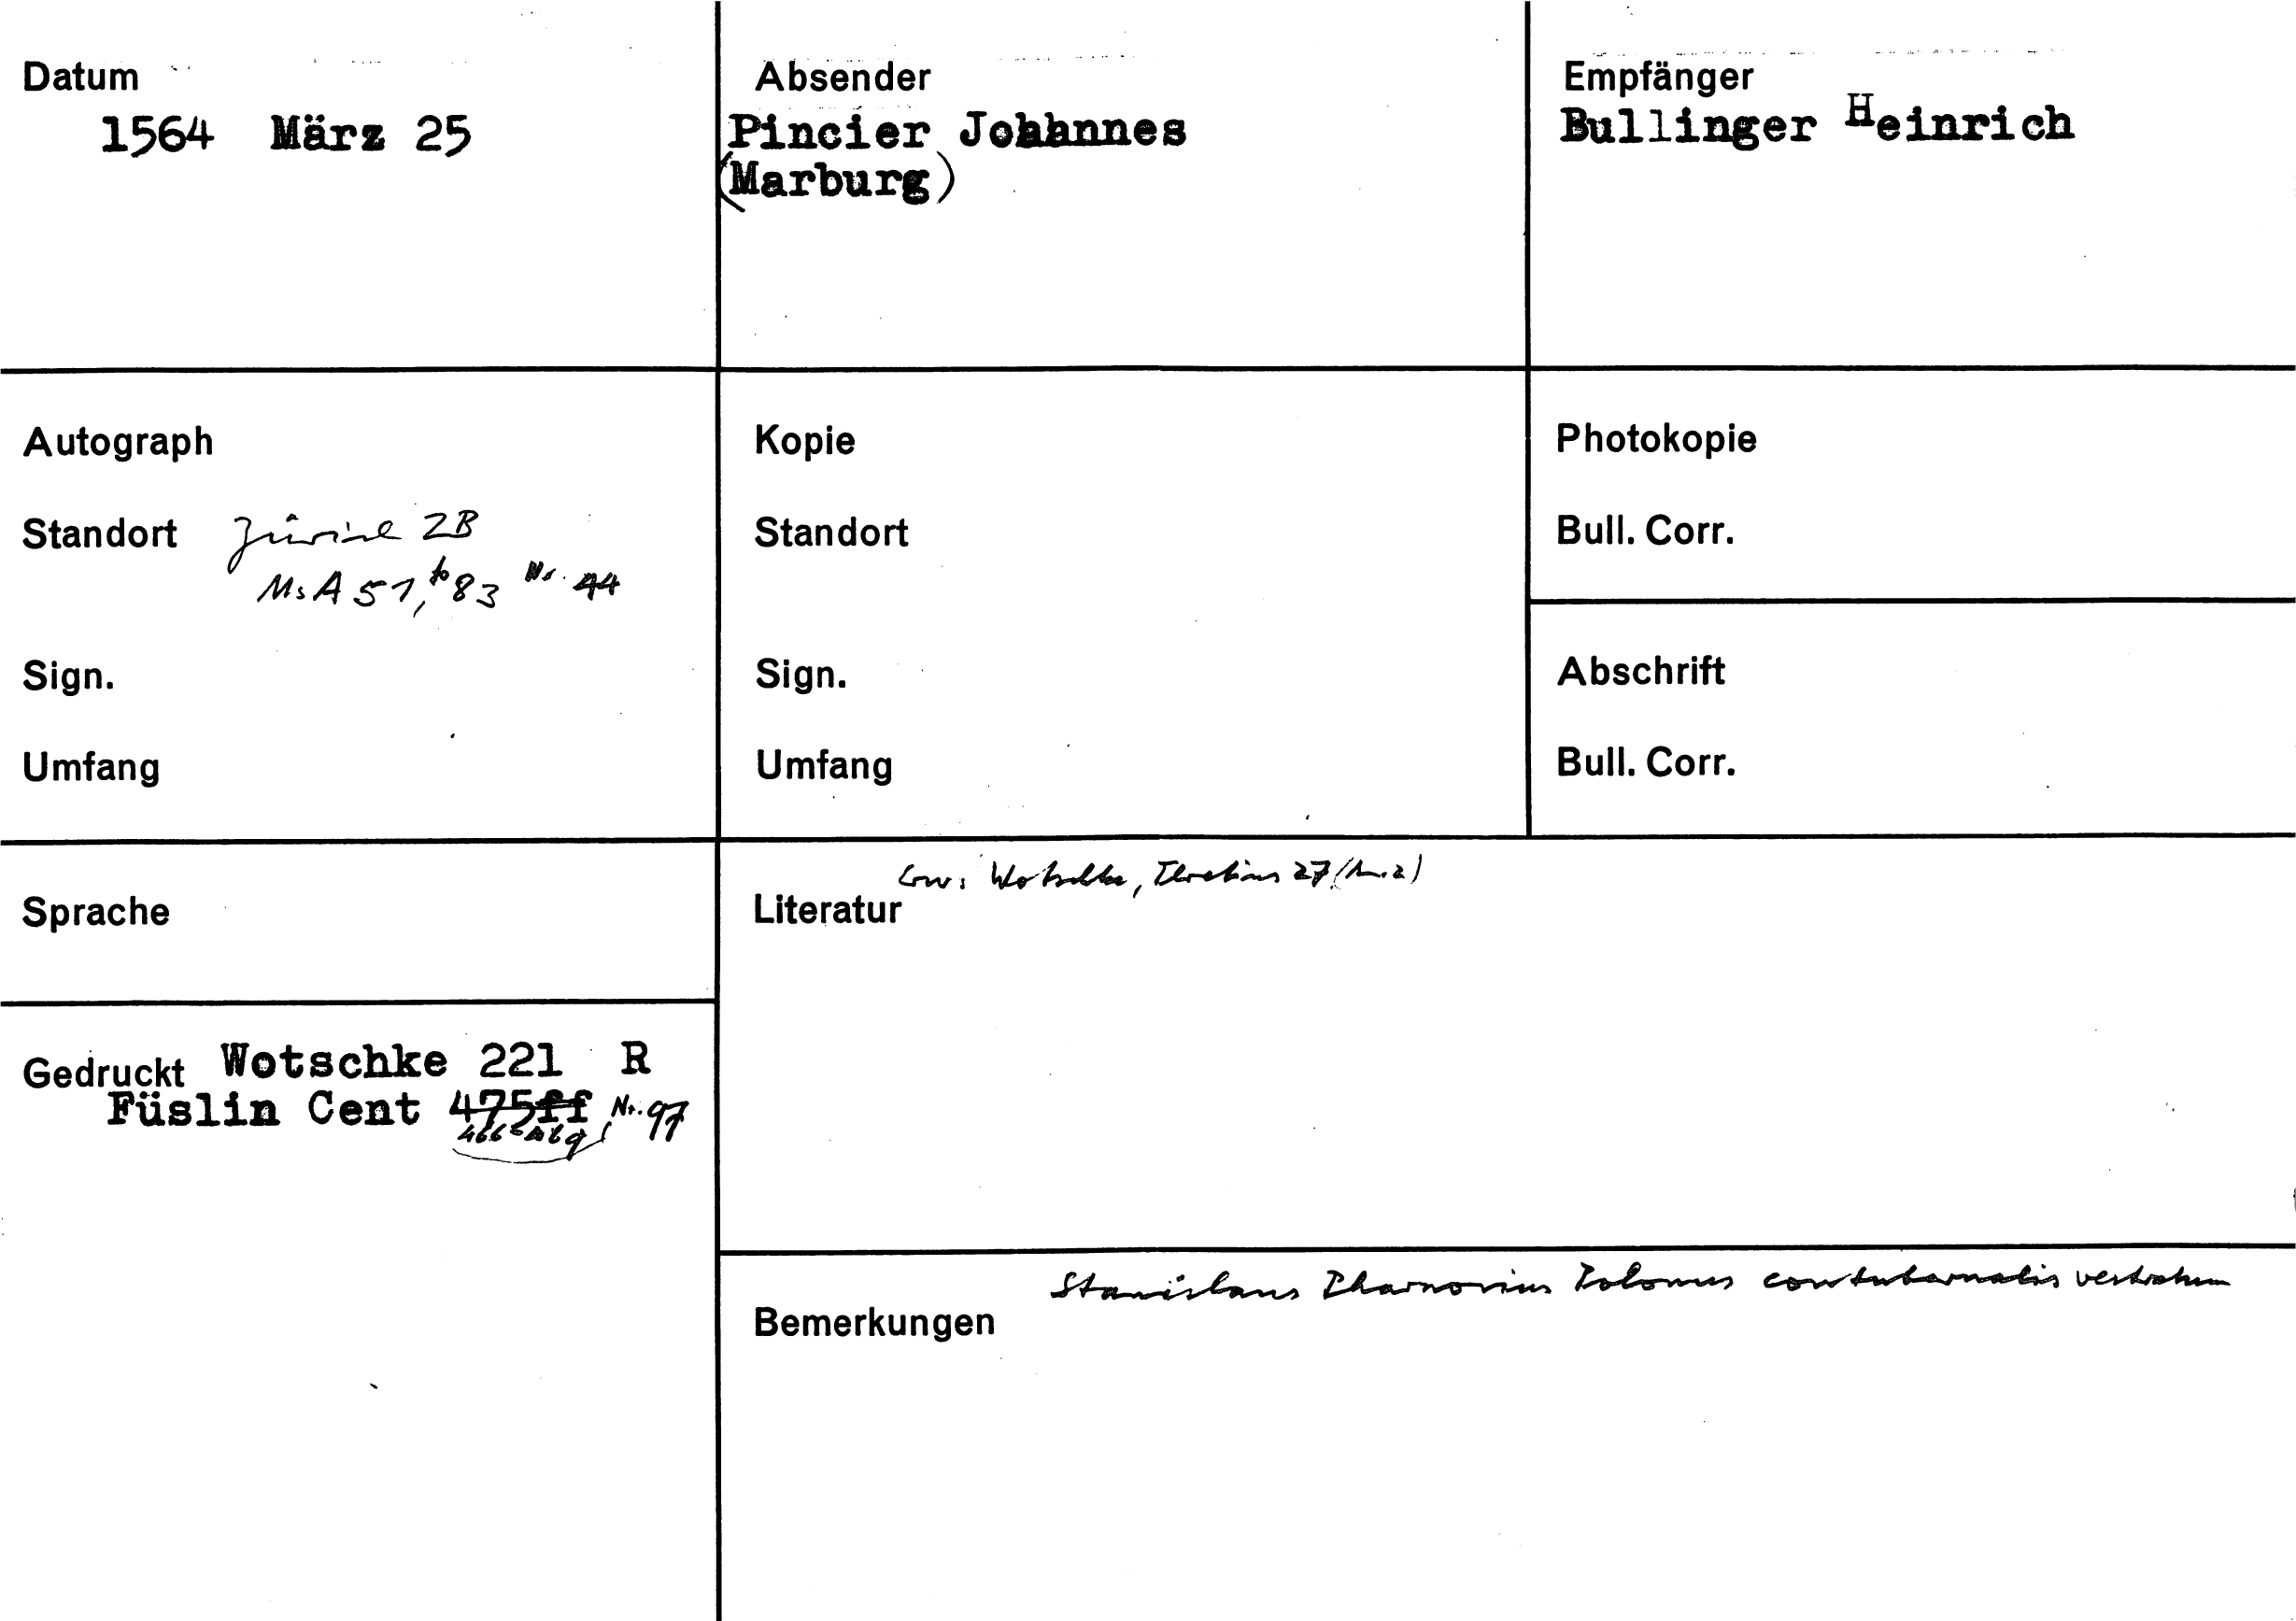 Datum
1564 März 25
Absender
Pincier Johannes
(Marburg)
Empfänger
Bullinger Heinrich
Autograph
Standort Zürich ZB
Ms A 51, 83 Nr. 44
Sign.
Umfang
Kopie
Standort
Sign.
Umfang
Photokopie
Bull. Corr.
Abschrift
Bull. Corr.
Sprache
Gedruckt Wotschke 221 R
Füslin Cent 475ff Nr. 97
Wotschke, 27
Literatur
Stanislaus Polonus contubernalis
Bemerkungen